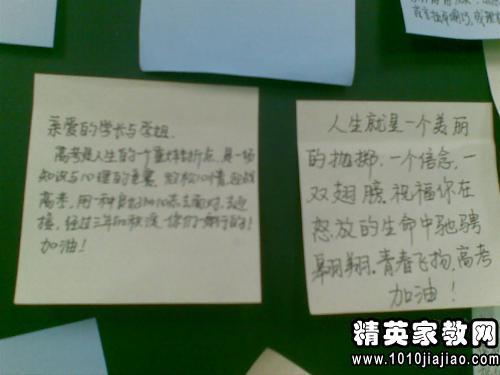 亲爱的学长与学姐.
高考是人生的一个重大转折点,是一场
知识与心理的竞赛,放松心情,迎战
高考,用一种良好的心态去面对,去迎
接,经过三年的秋没,你们一定行的!
加油!
人生就是一个美丽
的抛掷.一个信念.一
双翅膀.祝福你在
怒放的生命中驰骋
翱翔.青春飞扬.高考
加油!
精英家教网
www.1010jiajiao.com